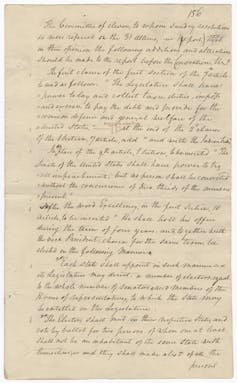 156
The Committee of eleven to whom sundry resolutions
were referred on the 31 ultimo, report, that
in their opinion the following additions and alterations
should be made to the report before the convention, viz:
The first clause of the first section of the 7 article
to read as follow. "The Legislature shall have
power to lay and collect taxes duties imposts
and excises to pay the debts and provide for the
common defence and general welfare of the
United States" — At the end of the 2d clause
of the 1 section, 7 article, add "and with the Indian tribes
In place of the 9th article, 1 section, to be inserted "The
Senate of the United States shall have power to try
all impeachments; but no person shall be convicted
without the concurrence of two thirds of the members
present"
After the word Excellency in the first section, 10
article, to be inserted "He shall hold his office
during the term of four years, and together with
the vice President, chosen for the same term, be
elected in the following manner
"Each state shall appoint in such manner as
its Legislature may direct, a number of electors equal
to the whole number of senators and members of the
House of representatives, to which the State may
be entitled in the Legislature
"The Electors shall meet in their respective States, and
vote by ballot for two persons of whom one at least
shall not be an inhabitant of the same State with
themselves: and they shall make a list of all the
persons